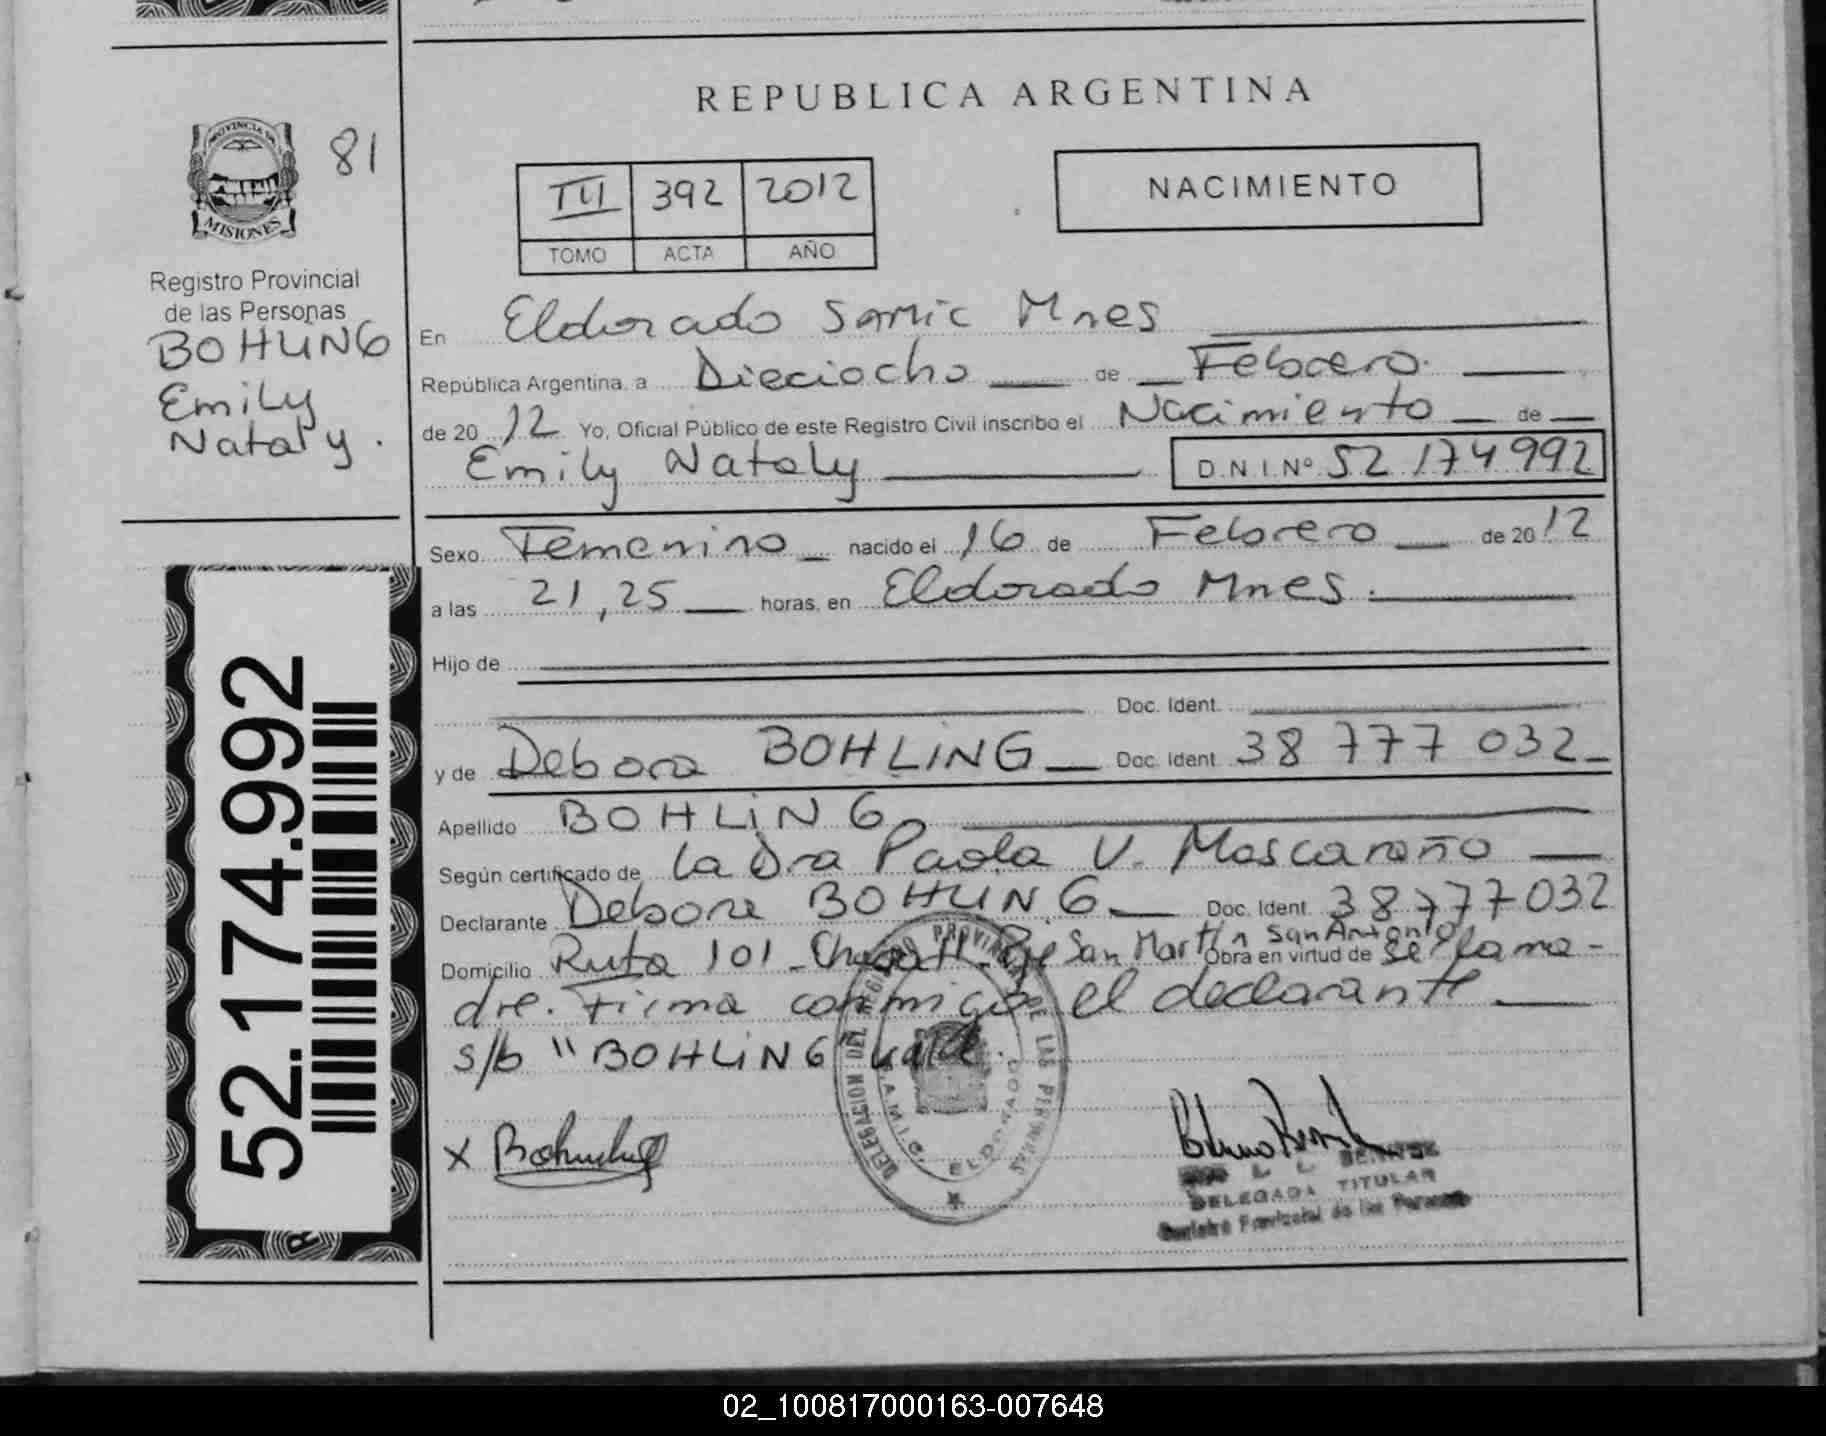 REPUBLICA ARGENTINA
PROVINCIA DE
MISIONES
81
Registro Provincial
de las Personas
BOHLING
Emily
Nataly.
52.174.992
III 392 2012
TOMO ACTA AÑO
NACIMIENTO
En Eldorado Samic Mnes
República Argentina, a Dieciocho de Febrero.
de 2012 Yo, Oficial Público de este Registro Civil inscribo el Nacimiento de
Emily Nataly D.N.I.Nº 52 174 992
Sexo Femenino nacido el 16 de Febrero de 2012
a las 21,25 horas, en Eldorado Mnes.
Hijo de
Doc. Ident.
y de Debora BOHLING Doc. Ident 38 777 032
Apellido BOHLING
Según certificado de La Dra Paola V.
Declarante Debora BOHLING Doc. Ident 38777032
Domicilio Ruta 101 San Martín San Antonio Obra en virtud de Ser la ma-
dre. Firma conmigo el declarante
s/b "BOHLING vale.
x
DELEGACION DEL REGISTRO PROVINCIAL DE LAS PERSONAS
S.A.M.I.C. ELDORADO
DELEGADA TITULAR
Registro Provincial de las Personas
02_100817000163-007648